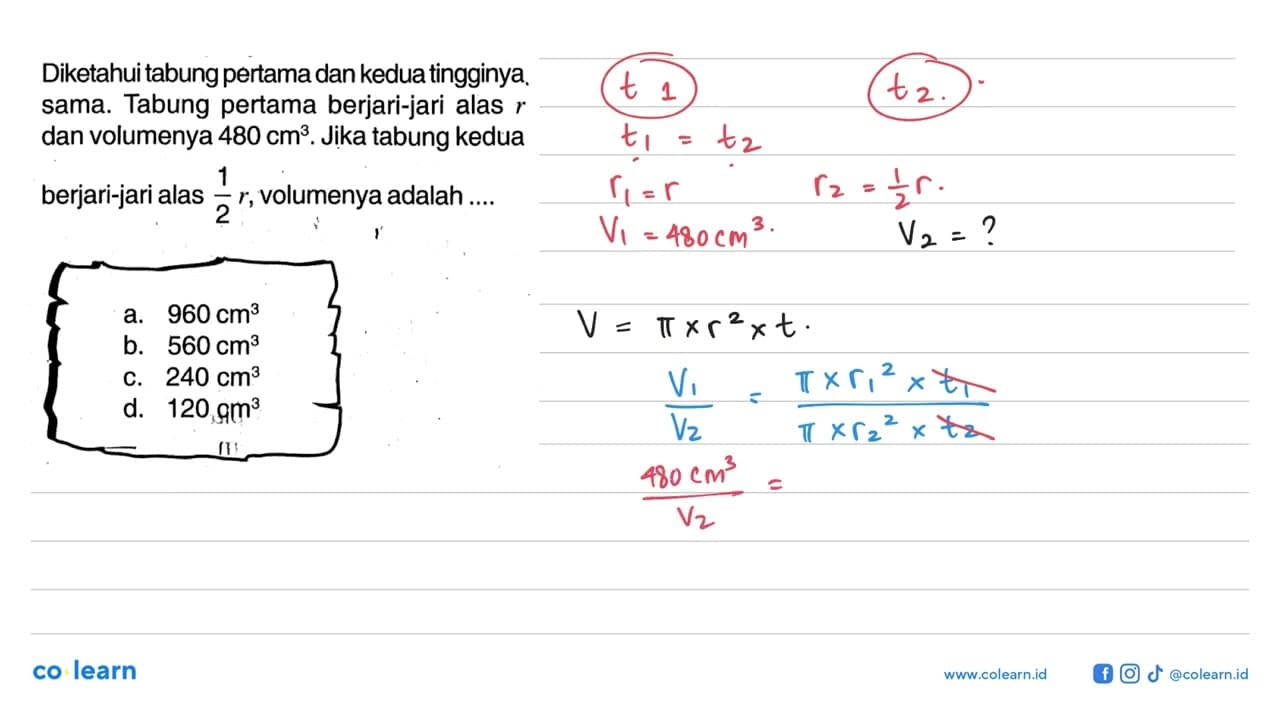 Diketahui tabung pertama dan kedua tingginya
sama. Tabung pertama berjari-jari alas r
dan volumenya 480 cm³. Jika tabung kedua
berjari-jari alas 1/2 r, volumenya adalah ....
a. 960 cm³
b. 560 cm³
c. 240 cm³
d. 120 cm³
t 1
t 2.
t₁ = t₂
r₁ = r
r₂ = 1/2 r.
V₁ = 480 cm³.
V₂ = ?
V = π × r² × t.
V₁/V₂ = π × r₁² × t₁ / π × r₂² × t₂
480 cm³/V₂ =
co learn
www.colearn.id
@colearn.id